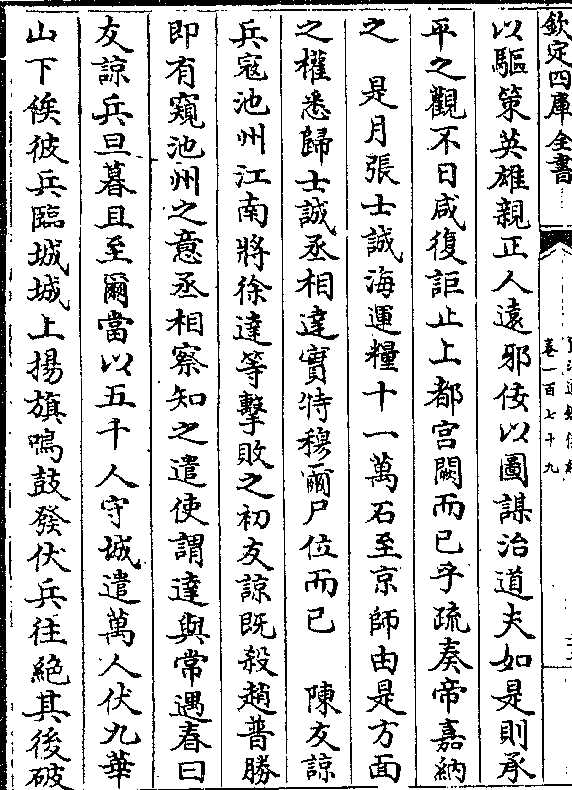 欽定四庫全書
卷一百七十九
以驅策英雄親正人遠邪佞以圖謀治道夫如是則承
平之觀不日咸復詎止上都宫闕而已乎疏奏帝嘉納
之　是月張士誠海運糧十一萬石至京師由是方面
之權悉歸士誠丞相達實特穆爾尸位而已　陳友諒
兵寇池州江南將徐達等擊敗之初友諒既殺趙普勝
即有窺池州之意丞相察知之遣使謂達與常遇春曰
友諒兵旦暮且至爾當以五千人守城遣萬人伏九華
山下俟彼兵臨城城上揚旗鳴鼓發伏兵往絶其後破